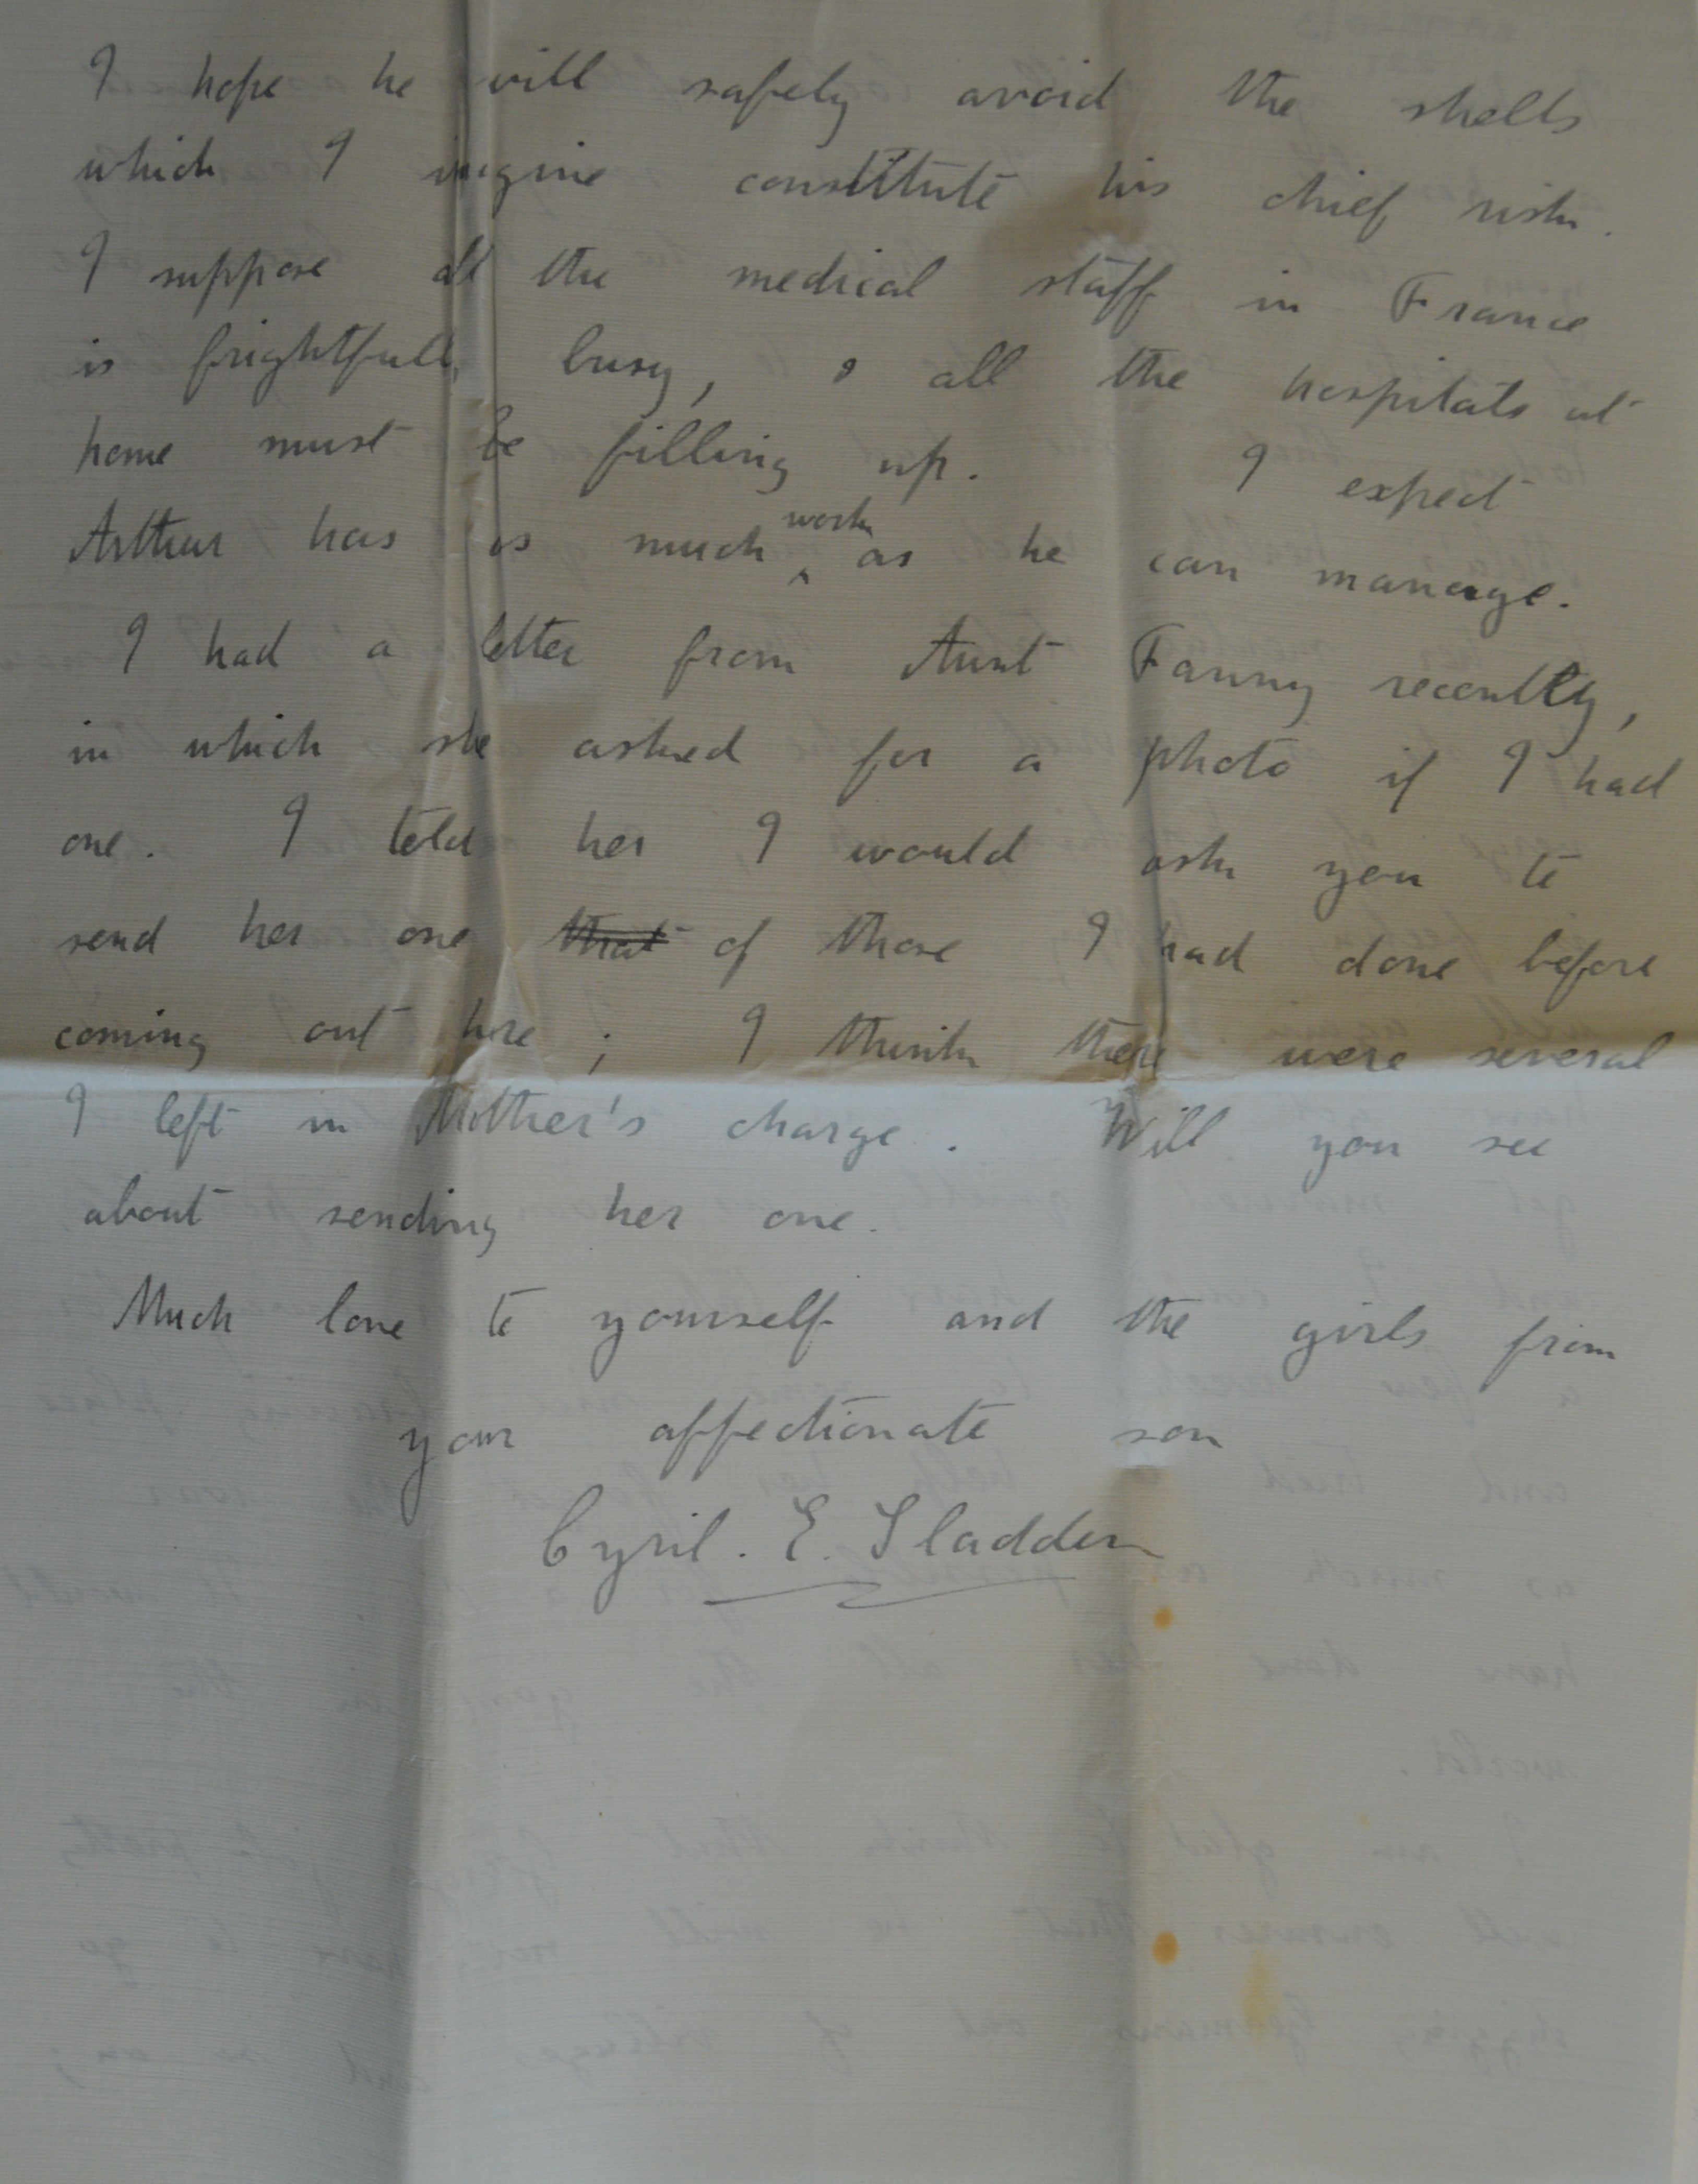 I hope he will safely avoid the shells
which I imagine constitute his chief risk.
I suppose all the medical staff in France
is frightfully busy, & all the hospitals at
home must be filling up. I expect
Arthur has as much work as he can manage.
I had a letter from Aunt Fanny recently,
in which she asked for a photo if I had
one. I told her I would ask you to
send her one that of those I had done before
coming out here; I think there were several
I left in Mother's charge. Will you see
about sending her one.
Much love to yourself and the girls from
your affectionate son
Cyril. E. Sladden